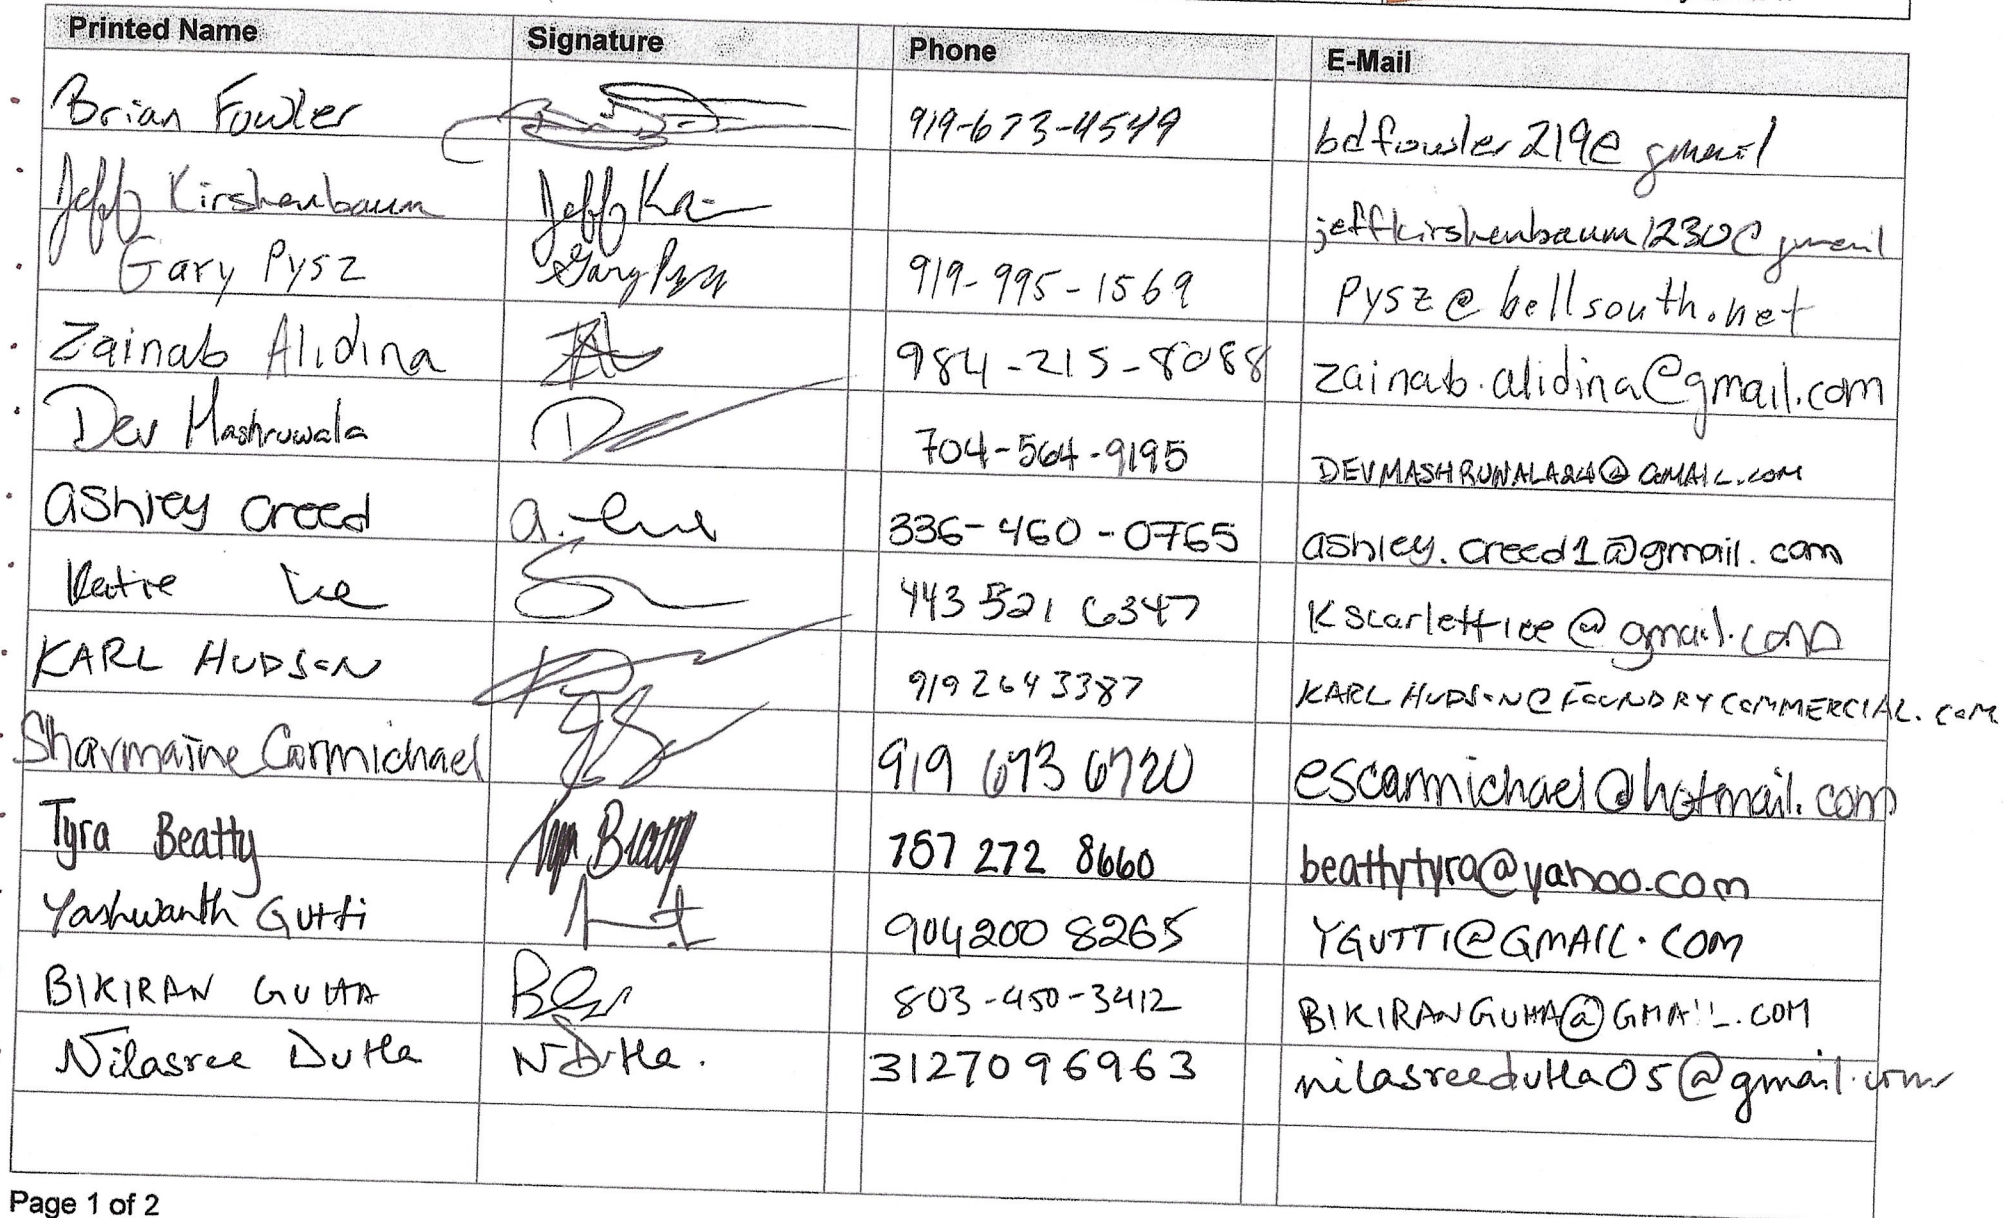 Printed Name Signature Phone E-Mail
Brian Fowler 919-673-4549 bdfowler219@ gmail
Jeff Kirshenbaum Jeff K jeffkirshenbaum1230@ gmail
Gary Pysz Gary Pysz 919-995-1569 Pysz@bellsouth.net
Zainab Alidina 984-215-8088 zainab.alidina@gmail.com
Dev Mashruwala D 704-564-9195 DEVMASHRUWALA24@GMAIL.COM
Ashley Creed a. 336-460-0765 ashley.creed1@gmail.com
Katie Ice 443 521 6347 kscarlettice@gmail.com
KARL HUDSON 919 264 3387 KARL HUDSON@FOUNDRYCOMMERCIAL.COM
Sharmaine Carmichael 919 673 6720 escarmichael@hotmail.com
Tyra Beatty Tyra Beatty 757 272 8660 beattytyra@yahoo.com
Yashwanth Gutti 904 200 8265 YGUTTI@GMAIL.COM
BIKIRAN GUHA 803-450-3412 BIKIRANGUHA@GMAIL.COM
Nilasree Dutta N Dutta. 3127096963 nilasreedutta05@gmail.com
Page 1 of 2